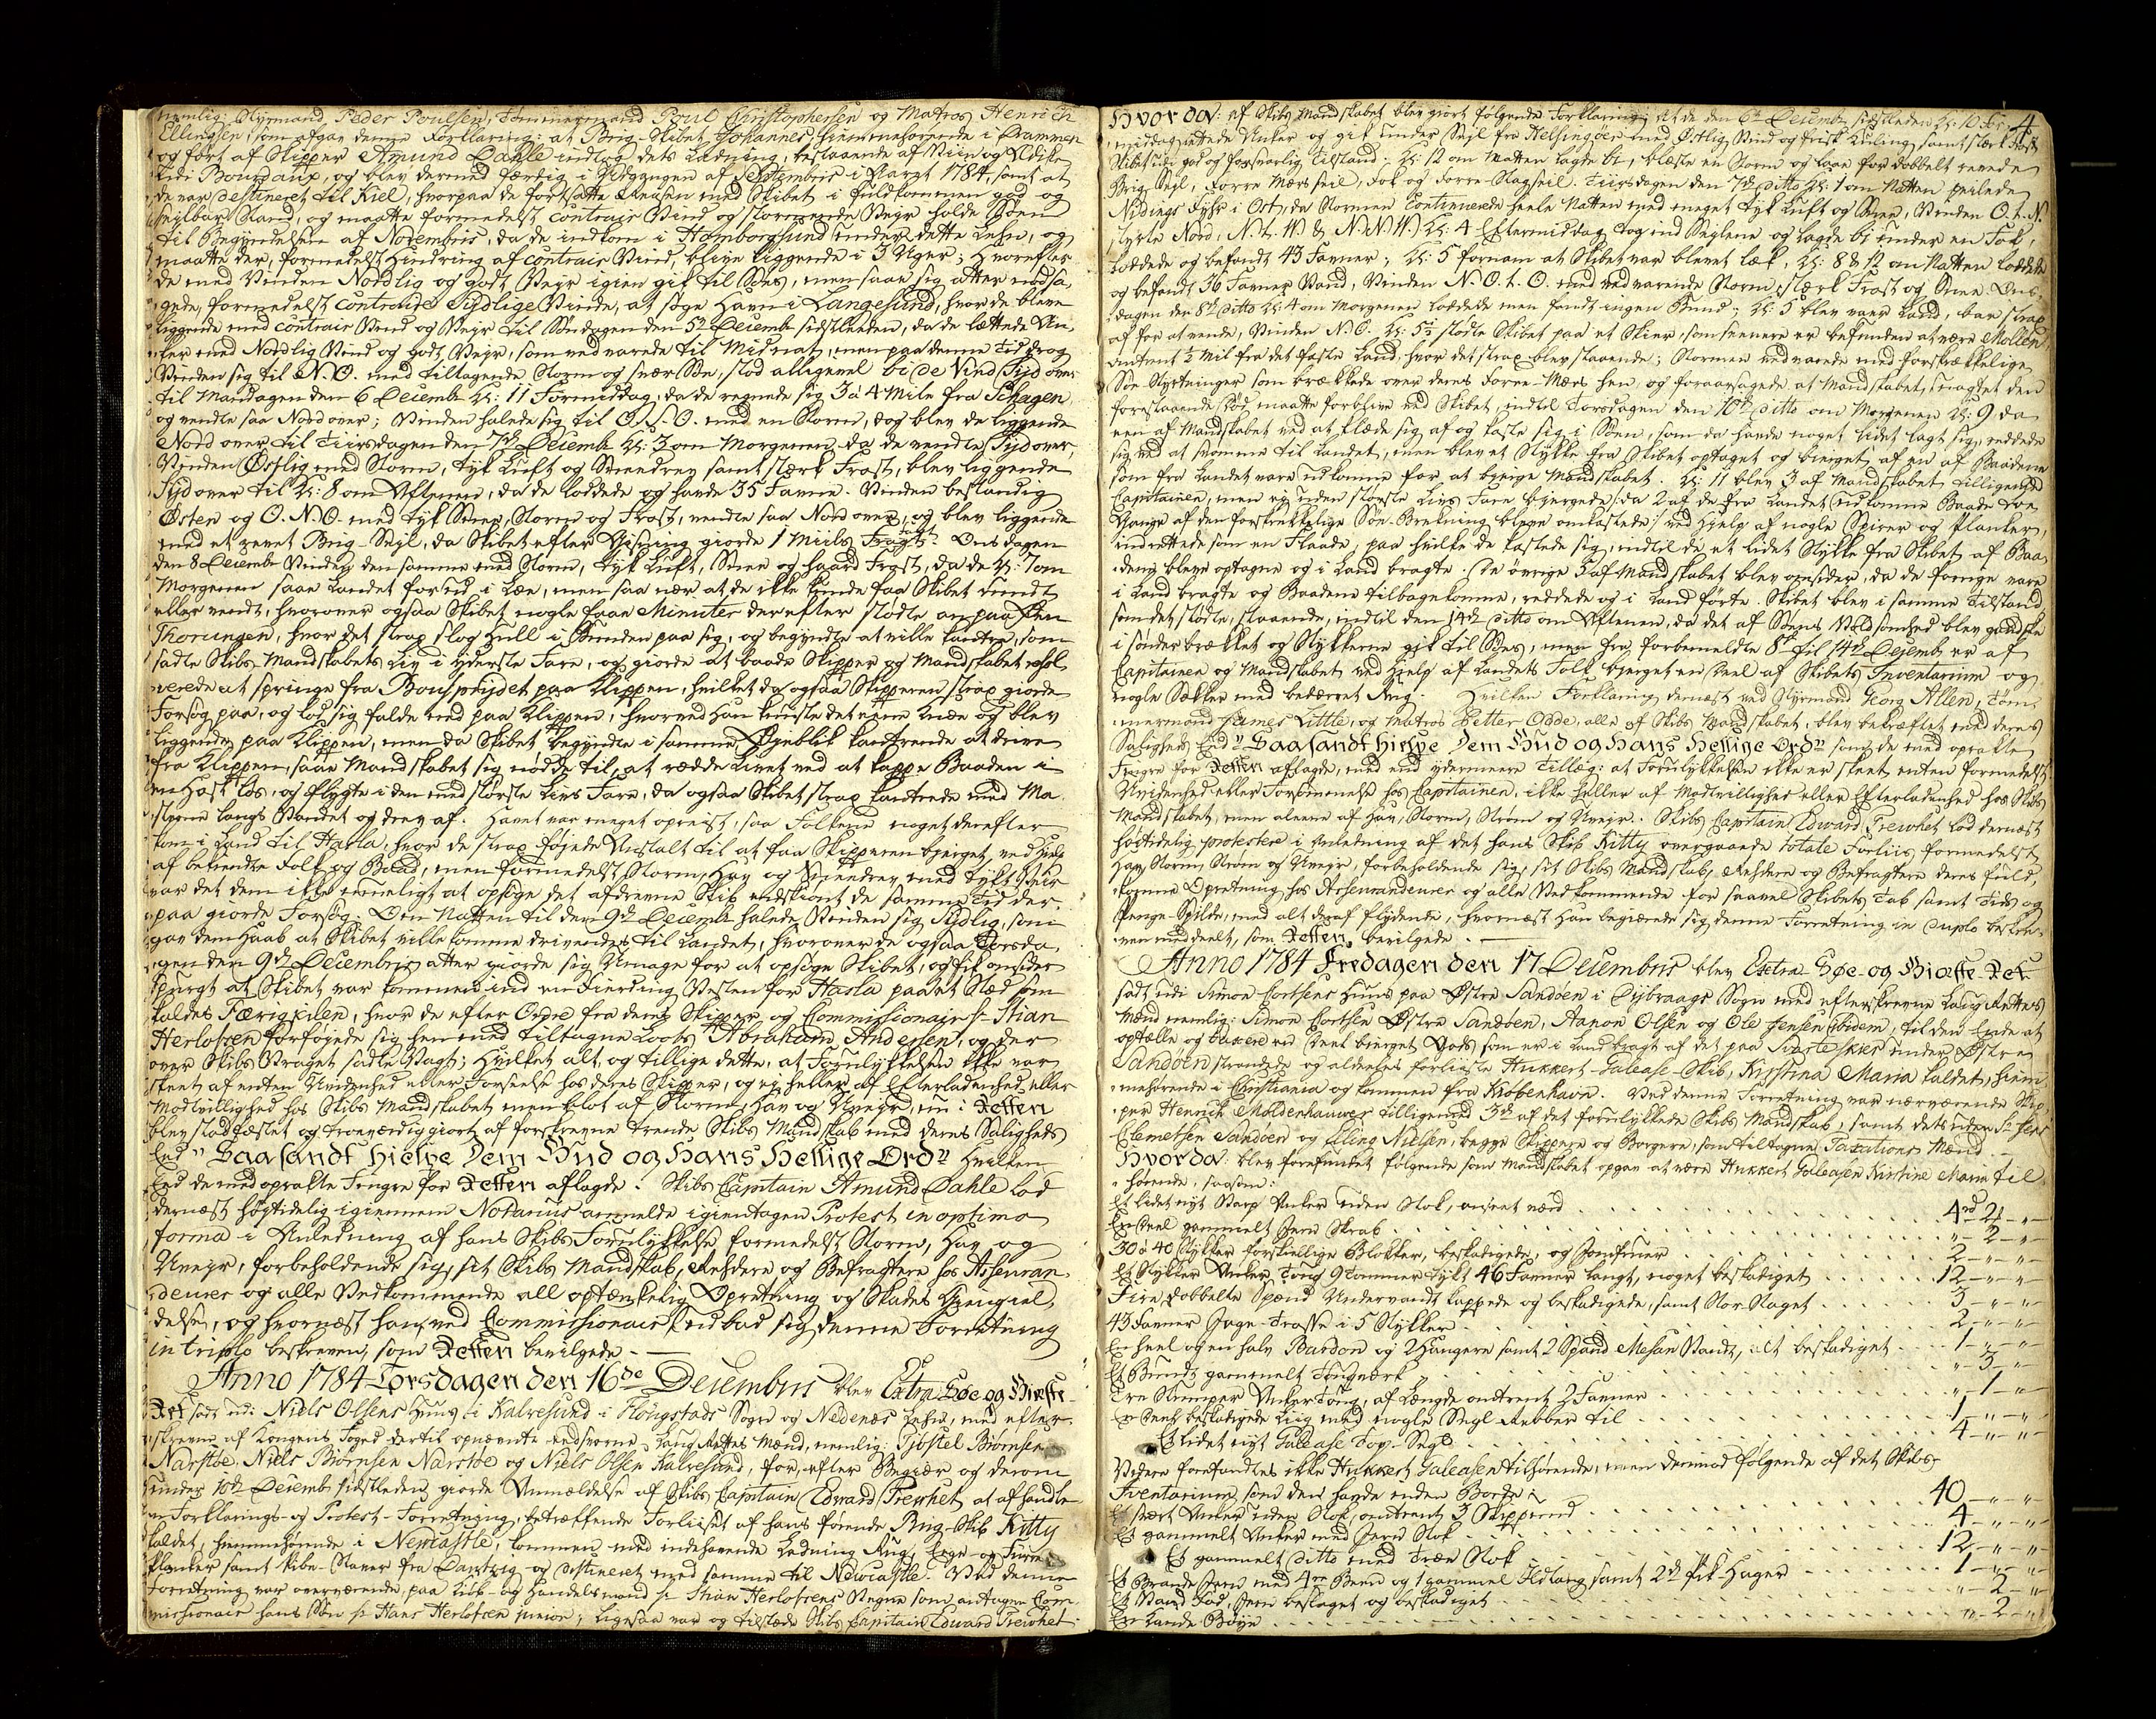 nemlig: Styrmand Peder Poulsen, Tømmermand Poul Christophersen og Matros Henrich
Ellingsen, som afgav denne Forklaring: at Brig-Skibet Johannes, hiemmehørende i Drammen
og ført af Skipper Amund Dahle indtog dets Ladning, bestaaende af Viin og Edike
udi Bourdaux, og blev dermed færdig i Udgangen af Septembris i Aaret 1784, samt at
de var destineret til Kiel, hvorpaa de fortsatte Reisen med Skibet i fuldkommen god og
seilbar Stand, og maatte formedelst contrair Vind og stormende Vejr holde Søen
til Begyndelsen af Novembris, da de indkom i Homborgsund under dette Lehn, og
maatte der, formedelst Hindring af contrair Vind, blive liggende i 3 Uger; Hvorefter
de med Vinden Nordlig og godt Vejr igien gik til Søes, men saae sig atter nødsa-
gede, formedelst contraire Sydlige Vinde, at søge Havn i Langesund, hvor de bleve
liggende med contrair Vind og Vejr til Søndagen den 5te Decembr sidstleden, da de lættede An-
ker med Nordlig Vind og godt Vejr, som vedvarede til Midnat, men paa denne Tid drog
Vinden sig til N. O. med tiltagende Storm og svær Søe, stod alligevel bi de Vind Syd over
til Mandagen den 6 Decembr Kl: 11 Formiddag, da de regnede sig 3 à 4 Mile fra Schagen,
og vendte saa Nord over; Vinden halede sig til O. S. O. med en Storm, dog blev de liggende
Nord over til Tiirsdagen den 7de Decembr Kl: 3 om Morgenen, da de vendte Syd over,
Vinden Østlig med Storm, tyk Luft og Sneedrev samt stærk Frost, blev liggende
Syd over til Kl: 8 om Aftenen, da de loddede og havde 35 Favne. Vinden bestandig
Østen og O. N. O. med tyk Snee, Storm og Frost, vendte saa Nord over, og blev liggende
med et revet Brig-Seil, da Skibet efter Gisning giorde 1 Miils Fragt. Onsdagen
den 8 Decembr Vinden den samme med Storm, tyk Luft, Snee og haard Frost, da de Kl: 7 om
Morgenen saae Landet forud i Læe, men saa nær at de ikke kunde faa Skibet rundt
eller vendt, hvorover ogsaa Skibet nogle faae Minuter derefter stødte an paa Øen
Thorungen, hvor det strax slog Hull i Bunden paa sig, og begyndte at ville kantre, som
satte Skibs Mandskabets Liv i yderste Fare, og giorde at baade Skipper og Mandskabet resol-
verede at springe fra Bougspriidet paa Klippen, hvilket da ogsaa Skipperen strax giorde
Forsøg paa, og lod sig falde ned paa Klippen, hvorved Han knuste det eene Knæe og blev
liggende paa Klippen, men da Skibet begyndte i samme Øjeblik kantrende at drive
fra Klippen, saae Mandskabet sig nødde til, at redde Livet ved at kappe Baaden i
en Hast løs, og flygte i den med største Livs Fare, da ogsaa Skibet strax kantrede med Ma-
sterne langs Vandet og drev af. Havet var meget opreist, saa Folkene noget derefter
kom i Land til Hasla, hvor de strax føjede Anstalt til at faa Skipperen bjerget, ved Hielp
af bekiendte Folk og Baad, men formedelst Storm, Hav og Sneedrev med tykt Vejr
var det dem ikke mueligt at opsøge det afdrevne Skib endskiønt de samme Tid der-
paa giorde Forsøg. Om Natten til den 9de Decembr halede Vinden sig Sydlig, som
gav dem Haab at Skibet ville komme drivendes til Landet, hvorover de ogsaa Torsda-
gen den 9de Decembris atter giorde sig Umage for at opsøge Skibet, og fik omsider
spurgt at Skibet var kommen ind en Fierding Vesten for Hasla paa et Stæd som
kaldes Færigkilen, hvor de efter Ordre fra deres Skipper og Commissionair Sr Stian
Herlofsen forføjede sig hen med tiltagne Loots Abraham Andersen, og der
over Skibs Vraget satte Vagt; Hvilket alt, og tillige dette, at Forulykkelsen ikke var
skeet af enten Uvidenhed eller Forseelse hos deres Skipper, og ej heller af Efterladenhed eller
Modtvillighed hos Skibs Mandskabet men blot af Storm, Hav og Uvejr, nu i Retten
blev stadfæstet og troeværdig giort af forskrevne trende Skibs Mandskab med deres Saligheds
Eed "Saa sandt Hielpe Dem Gud og Hans Hellige Ord" Hvilken
Eed de med oprakte Fingre for Retten aflagde. Skibs Capitain Amund Dahle lod
dernæst høytidelig igiennem Notarius anmelde igientagen Protest in optima
forma i Anledning af hans Skibs Forulykkelse formedelst Storm, Hav og
Uvejr, forbeholdende sig, sit Skibs Mandskab, Rehdere og Befragtere hos Assuran-
deurer og alle Vedkommende all optænkelig Opretning og Skades Giengield-
delse, og hvornæst han ved Commissionair udbad sig denne Forretning
in triplo beskreven, som Retten bevilgede. —
Anno 1784 Torsdagen den 16de Decembris blev Extra Søe og Giæste-
Ret sadt udi Niels Olsens Huus i Kalvesund i Hougstads Sogn og Nedenæs Lehn, med efter-
skrevne af Kongens Foged dertil opnævnte eedsvorne Laug Rettes Mænd, nemlig: Tjøstel Biørnsen
Narstøe, Niels Biørnsen Narstøe og Niels Olsen Kalvesund, for, efter Begiær og derom
under 10de Decembr sidstleden giorde Anmældelse af Skibs Capitain Edward Trewhet at afhandle
en Forklarings- og Protest-Forretning, betræffende Forliiset af hans førende Brig-Skib Kitty
kaldet, hiemmehørende i Newcastle, kommen med indehavende Ladning Rug, Eege- og Furre-
Planker samt Pibe-Staver fra Dantzig og destineret med samme til Newcastle. Ved denne
Forretning var overværende, paa Kiøb- og Handelsmand Sr Stian Herlofsens Vegne som antagen Com-
missionair hans Søn Sr Hans Herlofsen junior; ligesaa var og tilstæde Skibs Capitain Edward Trewhet.
4
Hvorda: af Skibs Mandskabet blev giort følgende Forklaring: at de den 6te Decembr sidstleden Kl: 10 For-
middag lettede Anker og gik under Seil fra Helsingøer med Østlig Vind og frisk Kuling, samt stærk Frost,
Skibet udi god og forsvarlig Tilstand; Kl: 12 om Natten lagde bi, blæste en Storm og laae for dobbelt revede
Brig-Seil, Forre Mers seil, Fok og Forre-Stagseil. Tiirsdagen den 7de ditto Kl: 1 om Natten peilede
Nidings Fyhr i Ost, da Stormen Continuerede heele Natten med meget tyk Luft og Snee, Vinden O. t. N.
styrte Nord, N. t. W. & N. N. W. Kl: 4 Eftermiddag tog ind Seylene og lagde bi under en Fok,
loddede og befandt 43 Favner; Kl: 5 fornam at Skibet var blevet læk, Kl: 8 & 12 om Natten loddede
og befandt 36 Favner Vand, Vinden N. O. t. O. med vedvarende Storm, stærk Frost og Snee. Ons-
dagen den 8de ditto Kl: 4 om Morgenen loddede men fandt ingen Bund; Kl: 5 blev vaer Land, bar strax
af for at vende, Vinden N. O. Kl: 5½ stødte Skibet paa et Skier, som senere er befunden at være Mollen,
omtrent ½ Mil fra det faste Land, hvor det strax blev staaende; Stormen vedvarede med forskrækkelige
Søe-Styrtninger som brækkede over deres Forre-Mers hen, og foraarsagede at Mandskabet, uagtet den
forestaaende Død, maatte forblive ved Skibet, indtil Torsdagen den 10de ditto om Morgenen Kl: 9, da
een af Mandskabet ved at klæde sig af og kaste sig i Søen, som da havde noget lidet lagt sig, reddede
sig ved at svømme til Landet, men blev et Stykke fra Skibet optaget og bierget af en af Baadene
som fra Landet vare udkomne for at bierge Mandskabet. Kl: 11 blev 3 af Mandskabet, tilligemed
Capitainen, men ej uden største Livs Fare bjergede (: da 2 af de fra Landet udkomne Baade toe
Gange af den forskrekkelige Søe-Brekning bleve omkastede :) ved Hjelp af nogle Spirer og Planker,
indrettede som en Flaade, paa hvilke de kastede sig, indtil de et lidet Stykke fra Skibet af Baa-
dene bleve optagne og i Land bragte. De øvrige 5 af Mandskabet blev omsider, da de forrige vare
i Land bragte og Baadene tilbagekomne, reddede og i Land førte. Skibet blev i samme Tilstand,
som det stødte, staaende, indtil den 14de ditto om Aftenen, da det af Søens Voldsomhed blev gandske
i sønder brækket og Stykkerne gik til Søes, men fra forbemeldte 8de til 14de Decembr er af
Capitainen og Mandskabet ved Hjelp af Landets Folk bjerget en Deel af Skibets Inventarium og
nogle Sækker med bedærvet Rug. Hvilken Forklaring dernæst ved Styrmand Georg Allen, Tøm-
mermand James Little, og Matros Petter Odde, alle af Skibs Mandskabet, blev bekræftet med deres
Saligheds Eed "Saa sandt hielpe dem Gud og Hans Hellige Ord" som de med oprakte
Fingre for Retten aflagde, med end ydermeere Tillæg: at Forulykkelsen ikke er skeet enten formedelst
Uvidenhed eller Forsømmelse hos Capitainen, ikke heller af Modtvillighed eller Efterladenhed hos Skibs
Mandskabet, men aleene af Hav, Storm, Strøm og Uvejr. Skibs Capitain Edward Trewhet lod dernæst
høytidelig protestere i Anledning af det hans Skib Kitty overgaaede totale Forliis formedelst
Hav, Storm, Strøm og Uvejr, forbeholdende sig, sit Skibs Mandskab, Rehdere og Befragtere deres fuld-
komne Opretning hos Assurandeurer og alle Vedkommende for saavel Skibets Tab samt Tids og
Penge-Spilde, med alt deraf flydende, hvornæst Han begierede sig denne Forretning in duplo beskre-
ven meddeelt, som Retten bevilgede. —
Anno 1784 Fredagen den 17 Decembris blev Extra Søe- og Giæste-Ret
sadt udi Simon Cortsens Huus paa Østre Sandøen i Dybvaags Sogn med efterskrevne Laug Rettes
Mænd nemlig: Simon Cortsen Østre Sandøen, Aanon Olsen og Ole Jensen ibidem, til den Ende at
optelle og taxere en Deel bierget Gods som er i Land bragt af det paa Skier under Østre
Sandøen strandede og aldeles forliiste Hukkert-Galease-Skib, Kirstina Maria kaldet, hiem-
mehørende i Christiania og kommen fra Kiøbenhavn. Ved denne Forretning var nærværende Skip-
per Henrich Moldenhauwer tilligemed 3de af det forulykkede Skibs Mandskab, samt desuden Sr Jens
Clemetsen Sandøen og Elling Nielsen, begge Skippere og Borgere, som tiltagne Taxations Mænd. —
Hvorda: blev forefundet følgende som Mandskabet opgav at være Hukkert Galeasen Kirstine Maria til-
hørende, saasom:
Et lidet nyt Varp Anker uden Stok, anseet værd . . . 4rd 2 „ —
En Deel gammelt Jern Skrab . . . „ — 2 — „ —
30 à 40 Stykker forskiellige Blokker, beskadigede, og Jomfruer . . . 2 — „ — „ —
Et Stykker Anker Toug 9 Tommer tykt 46 Favner langt, noget beskadiget . . . 12 — „ — „ —
Fire dobbelte Spænd Undervandt kappede og beskadigede, samt Stor-Staget . . . 3 — „ — „ —
43 Favner Jage-Trosse i 5 Stykker . . . 2 — „ — „ —
En heel og en halv Bardon og 2 Hangere samt 2 Spænd Mesan Vandt, alt beskadiget . . . 1 — „ — „ —
Et Bundt gammelt Tougværk . . . „ — 3 — „ —
Tre Stumper Anker Toug, af Længde omtrent 2 Favner . . . „ — 1 — „ —
En Deel beskadigede Liig med nogle Segl Rebber til . . . 1 — „ — „ —
Et lidet nyt Galease Top-Segl . . . 4 — „ — „ —
Videre forefandtes ikke Hukkert Galeasen tilhørende, men derimod følgende af det Skibs-
Inventarium som den havde inden Borde:
Et svært Anker uden Stok, omtrent 3 Skippund . . . 40 — „ — „ —
Et gammelt Anker med Jern Stok . . . 4 — „ — „ —
Et gammelt ditto med Træe Stok . . . 12 — „ — „ —
Et Brande Jern med 4re Been og 1 gammel Ildtang samt 2de Pik-Hager . . . 1 — „ — „ —
Et Vand Fad, Jern beslaget og beskadiget . . . „ — 2 — „ —
En Lande Bøye . . . „ — 2 — „